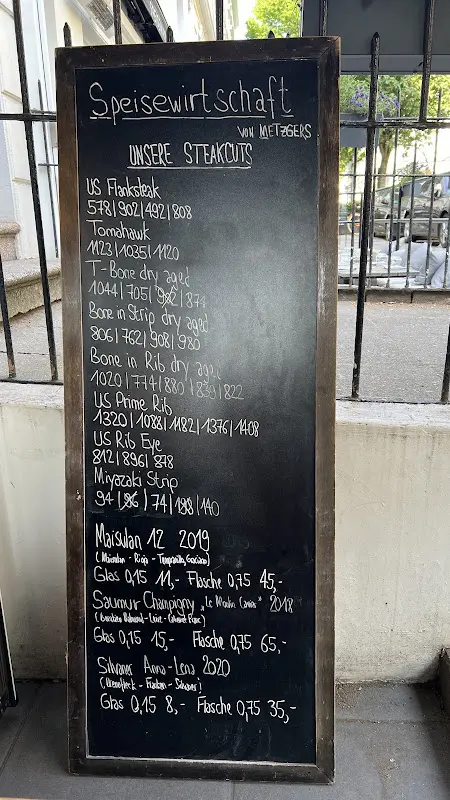 Speisewirtschaft
VON METZGERS
UNSERE STEAKCUTS
US Flanksteak
578|902|492|808
Tomahawk
1123|1035|1120
T-Bone dry aged
1044|705|982|874
Bone in Strip dry aged
806|762|908|980
Bone in Rib dry aged
1020|774|880|839|822
US Prime Rib
1320|1088|1182|1376|1408
US Rib Eye
812|896|878
Miyazaki Strip
94|86|74|198|140
Maisulan 12 2019
Glas 0,15 11,- Flasche 0,75 45,-
Saumur Champigny 2018
Glas 0,15 15,- Flasche 0,75 65,-
Silvaner Anna-Lena 2020
Franken - Silvaner)
Glas 0,15 8,- Flasche 0,75 35,-